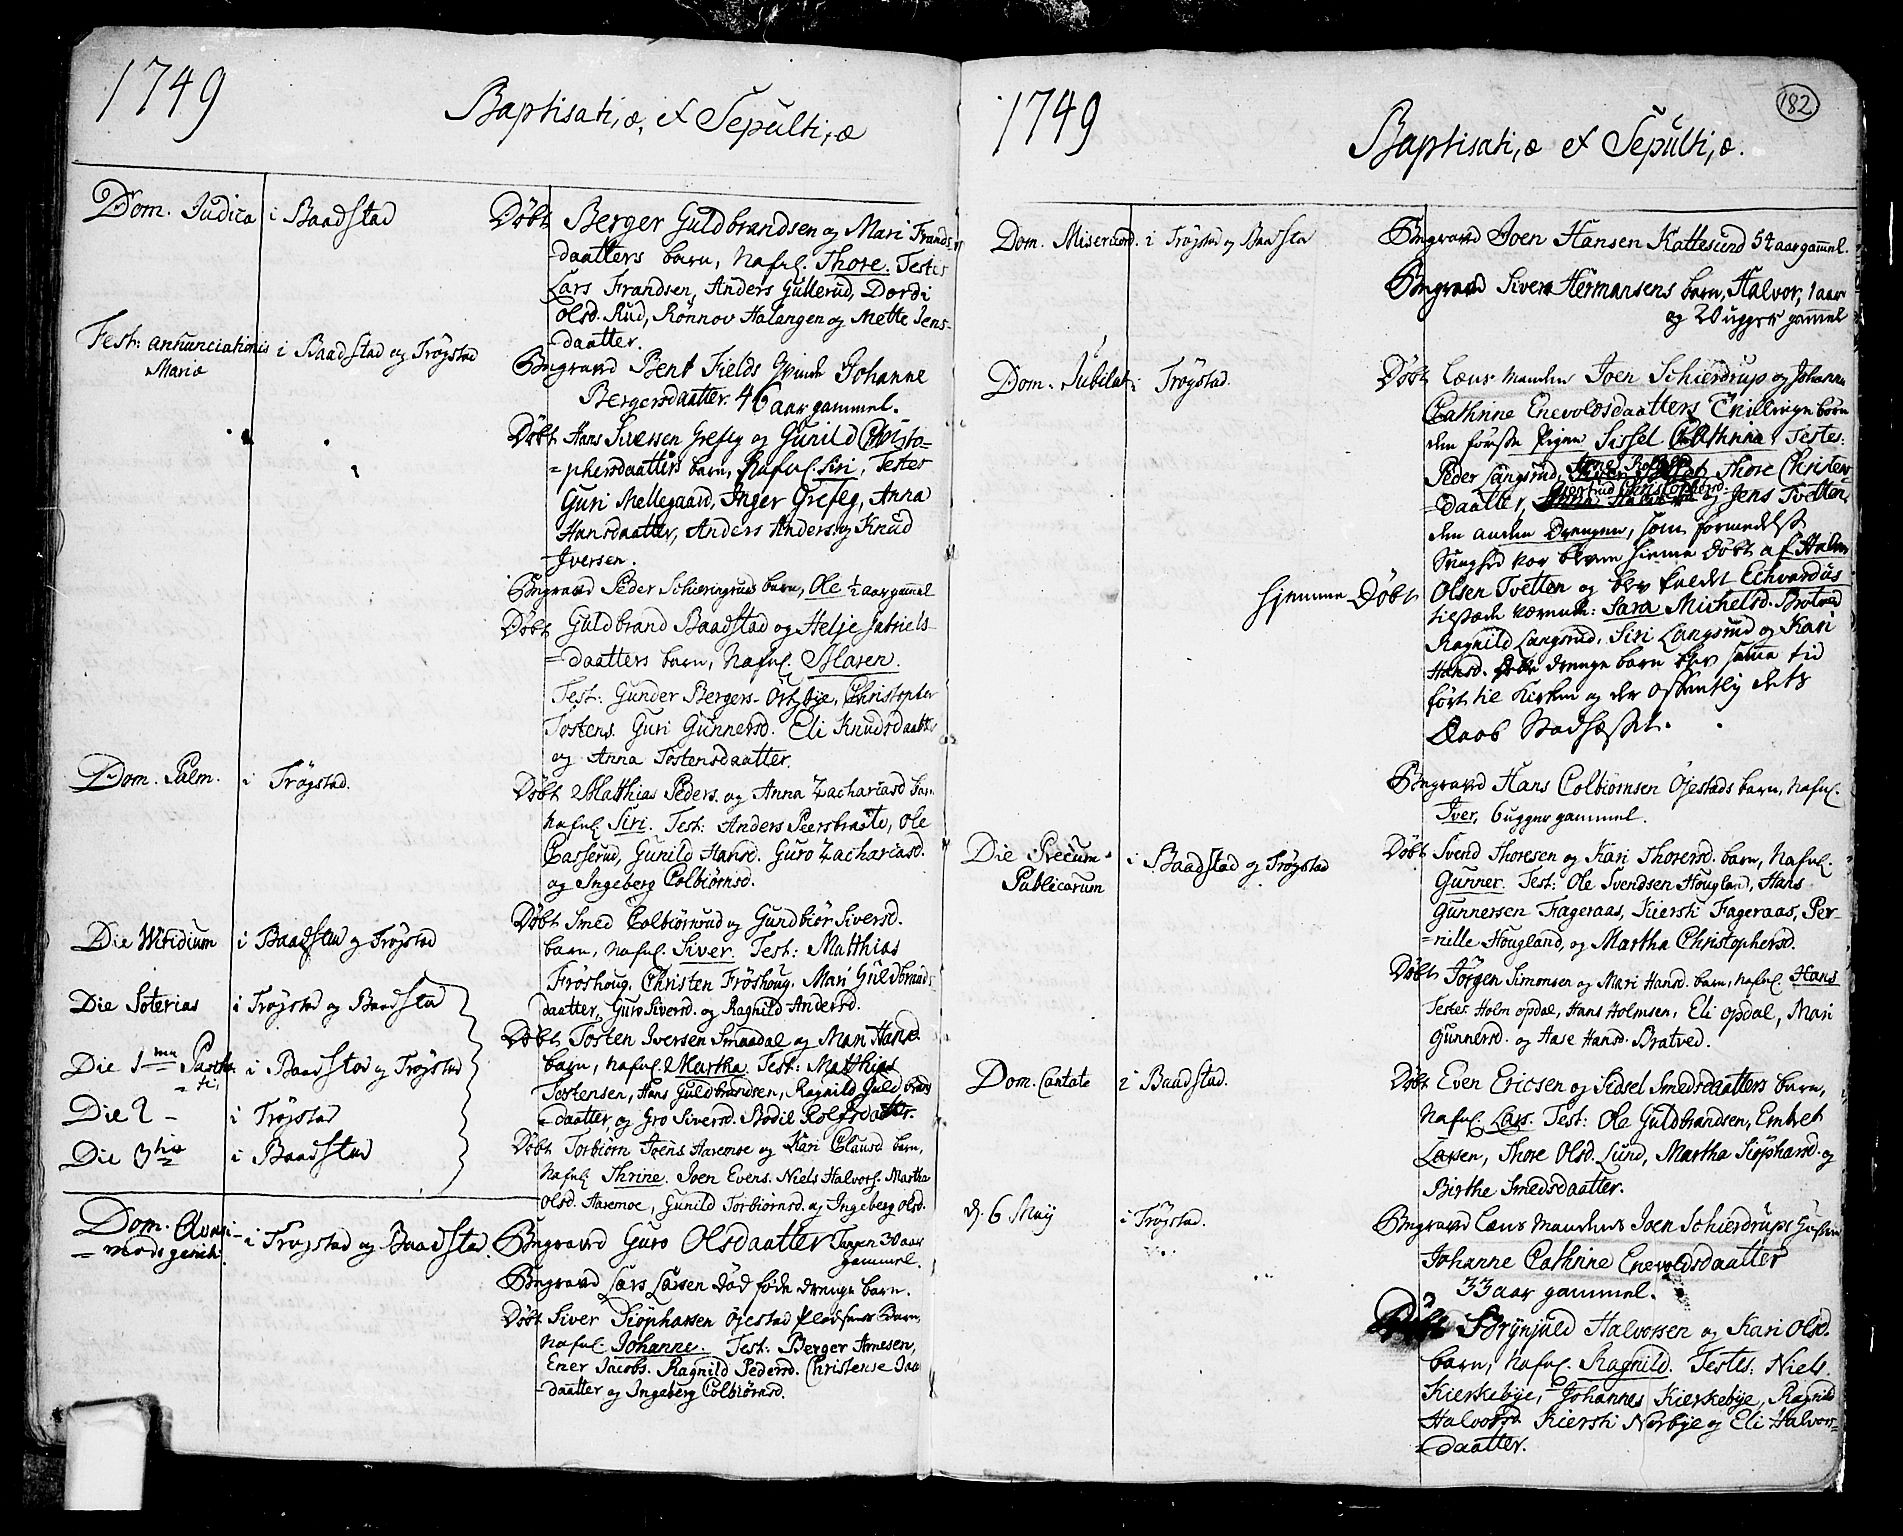 1749
Baptisati,æ, et Sepulti,æ
Dom. Judica i Baadstad
Døbt Berger Guldbrandsen og Mari Frands-
daatters barn, Nafnl. Thore. Testes
Lars Frandsen, Anders Gullerud, Dordi
Olsd. Rud, Rønnov Halangen og Mette Jens-
daatter.
Fest: annunciationis i Baadstad og Trøgstad
Mariæ
Begravd Bent Fields Qvinde Johanne
Bergersdaatter. 46 aar gammel.
Døbt Hans Siversen Grefeg og Gunild Christo-
=phersdaatters barn, Nafnl. Siri, Testes
Guri Mellegaard, Inger Grefeg, Anna
Hansdaatter, Anders Anders. og Knud
Iversen.
Begravd Peder Schieringruds barn, Ole ½ aar gamel
Døbt Guldbrand Baadstad og Helje Gabriels-
=daatters barn, Nafnl. Maren.
Test: Gunder Bergers. Østbye, Christopher
Tostens. Guri Gunnersd. Eli Knudsdaatter
og Anna Tostensdaatter.
Dom. Palm. i Trøgstad.
Døbt Matthias Peders. og Anna Zachariasd barn
Nafnl Siri. Test: Anders Peersbraate, Ole
Casserud, Gunild Hansd. Guro Zachariasd.
og Ingeberg Colbiørnsd.
Die Viridium i Baadstad og Trøgstad
Døbt Smed Colbiørnrud og Gundbiør Siversd.
barn, Nafnl. Siver. Test: Matthias
Frøshoug, Christen Frøshoug, Mari Guldbrands
daatter, Guro Siversd. og Ragnild Andersd.
Die Soterias i Trøgstad og Baadstad
Døbt Tosten Iversen Smaadal og Mari Hansd.
barn, Nafnl. Martha. Test: Matthias
Die 1ma Pascha- i Baadstad og Trøgstad
tis,
Tostensen, Hans Guldbrandsen, Ragnild Guldbrands
daatter, og Gro Siversd. Bodil Rolfsdaatter.
Die 2 - i Trøgstad
Die 3tia i Baadstad
Døbt Torbiørn Joens Havemoe og Kari Clausd barn,
Nafnl Thrine. Joen Evens. Niels Halvors. Martha
Olsd. Havemoe, Gunild Torbiørnsd. og Ingeberg Olsd.
Dom. Qvasi- i Trøgstad og Baadstad
=modogenit:
Begravd Guro Olsdaatter 30 aar
gammel.
Begravd Lars Larsen død føde drenge barn.
Døbt Siver Siøphersen Øjestad Pladsens Barn,
Nafnl Johanne. Test: Berger Arnesen,
Ener Jacobs. Ragnild Pedersd. Christense
daatter og Ingeberg Colbiørnsd.
1749
182
Baptisati,æ et Sepulti,æ.
Dom. Misericord. i Trøgstad og Baadsta
Begravd Joen Hansen Kattesund 54 aar gamel.
Begravd Siver Hermansens barn, Halvor, 1 aar
og 20 uger gamel
Dom. Jubilat: Trøgstad.
Døbt Lens manden Joen Schierdrup og Johanna
Cathrine Enevoldsdaatters Tvillinge børn
den første Pigen Sissel Cathrina. Testes:
Peder Langsrud, Thore Christens
=daatter, Giertrud Christophersd. og Jens Tvetten,
den anden Drengen, som formedelst
Svaghed var bleven hiemme døbt af Halvor
hjemme Døbt Olsen Tvetten og blev kaldet Echvardus
tilstæde værende: Sara Michelsd. Bratved
Ragnild Langsrud, Siri Langsrud og Kari
Hansd. drenge barn blev samme tid
ført til Kirken og der offentlig dets
Daab Stadfæstet.
Begravd Hans Colbiørnsen Øjestads barn, Nafnl.
Iver, 6 uger gammel.
Die Precum i Baadstad og Trøgstad
Publicarum
Døbt Svend Thoresen og Kari Thoresd. barn, Nafnl.
Gunner. Test: Ole Svendsen Hougland, Hans
Gunnersen Fageraas, Kiersti Fageraas, Per-
=nille Hougland, og Martha Christophersd.
Døbt Jørgen Simonsen og Mari Hansd. barn, Nafnl. Hans
Testes Holm Opdal, Hans Holmsen, Eli Opdal, Mari
Gunnersd. og Aase Hansd. Bratved.
Dom. Cantate i Baadstad.
Døbt Even Ericsen og Sidsel Smedsdaatters barn,
Nafnl. Lars. Test: Ole Guldbrandsen, Embret
Larsen, Thore Olsd. Lund, Martha Siøphersd. og
Birthe Smedsdaatter.
d. 6 Maij i Trøgstad.
Begravd Lens mandens Joen Schierdrups Hustru
Johanne Cathrine Enevoldsdaatter
33 aar gammel.
Døbt Brynjuld Halvorsen og Kari Olsd.
barn, Nafnl. Ragnild. Testes: Niels
Kierkebye, Johannes Kierkebye, Ragnild
Halvorsd. Kiersti Norbye og Eli Halvor=
=daatter.